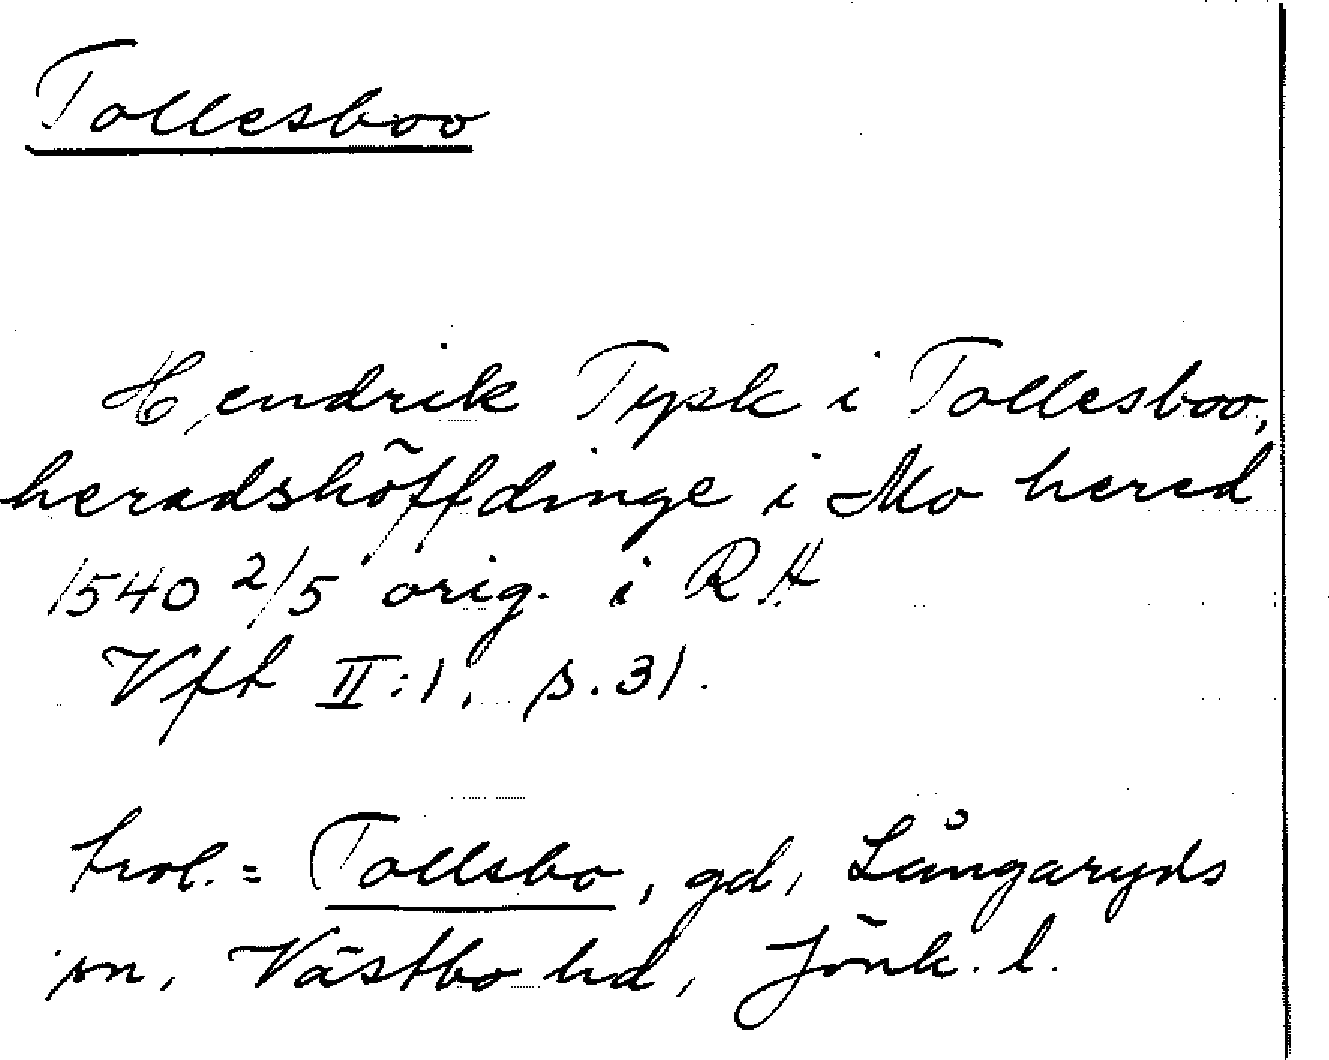 Tollesboo
Hendrik Tysk i Tollesboo,
heradshöffdinge i Mo hered
1540 2/5 orig. i RA
Vfh II:1, s. 31.
trol. = Tollsbo, gd, Långaryds
sn, Västbo hd, Jönk. l.